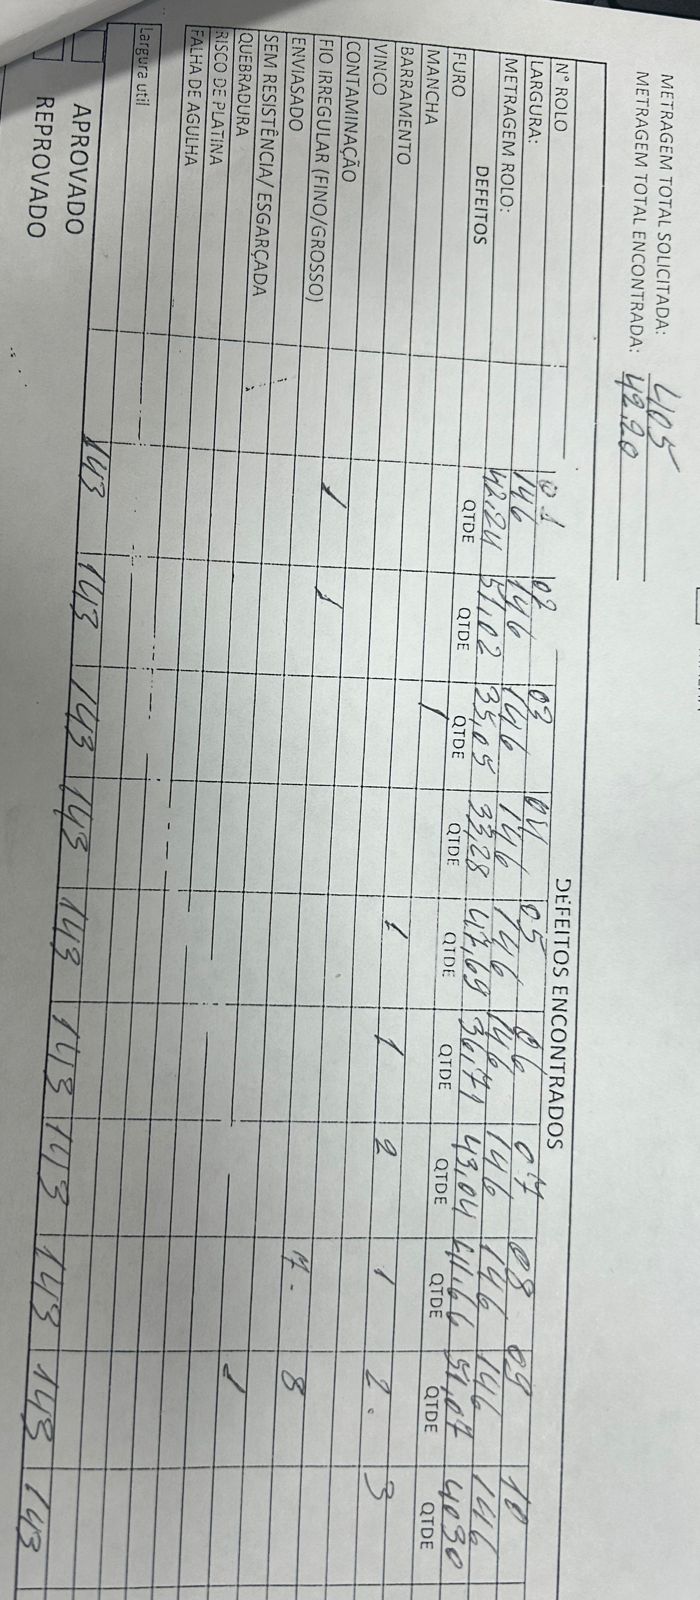 METRAGEM TOTAL SOLICITADA: 405
METRAGEM TOTAL ENCONTRADA: 42,20
DEFEITOS ENCONTRADOS
N° ROLO 01 02 03 04 05 06 07 08 09 10
LARGURA: 146 146 146 146 146 146 146 146 146 146
METRAGEM ROLO: 42,24 51,02 35,05 33,28 47,69 36,71 43,04 41,66 51,07 4030
DEFEITOS QTDE QTDE QTDE QTDE QTDE QTDE QTDE QTDE QTDE QTDE
FURO 1
MANCHA 1 1 2 1 2. 3
BARRAMENTO
VINCO
CONTAMINAÇÃO 1 1 7. 8
FIO IRREGULAR (FINO/GROSSO)
ENVIASADO 1
SEM RESISTÊNCIA/ ESGARÇADA
QUEBRADURA
RISCO DE PLATINA
FALHA DE AGULHA
Largura util 143 143 143 143 143 143 143 143 143 143
APROVADO
REPROVADO